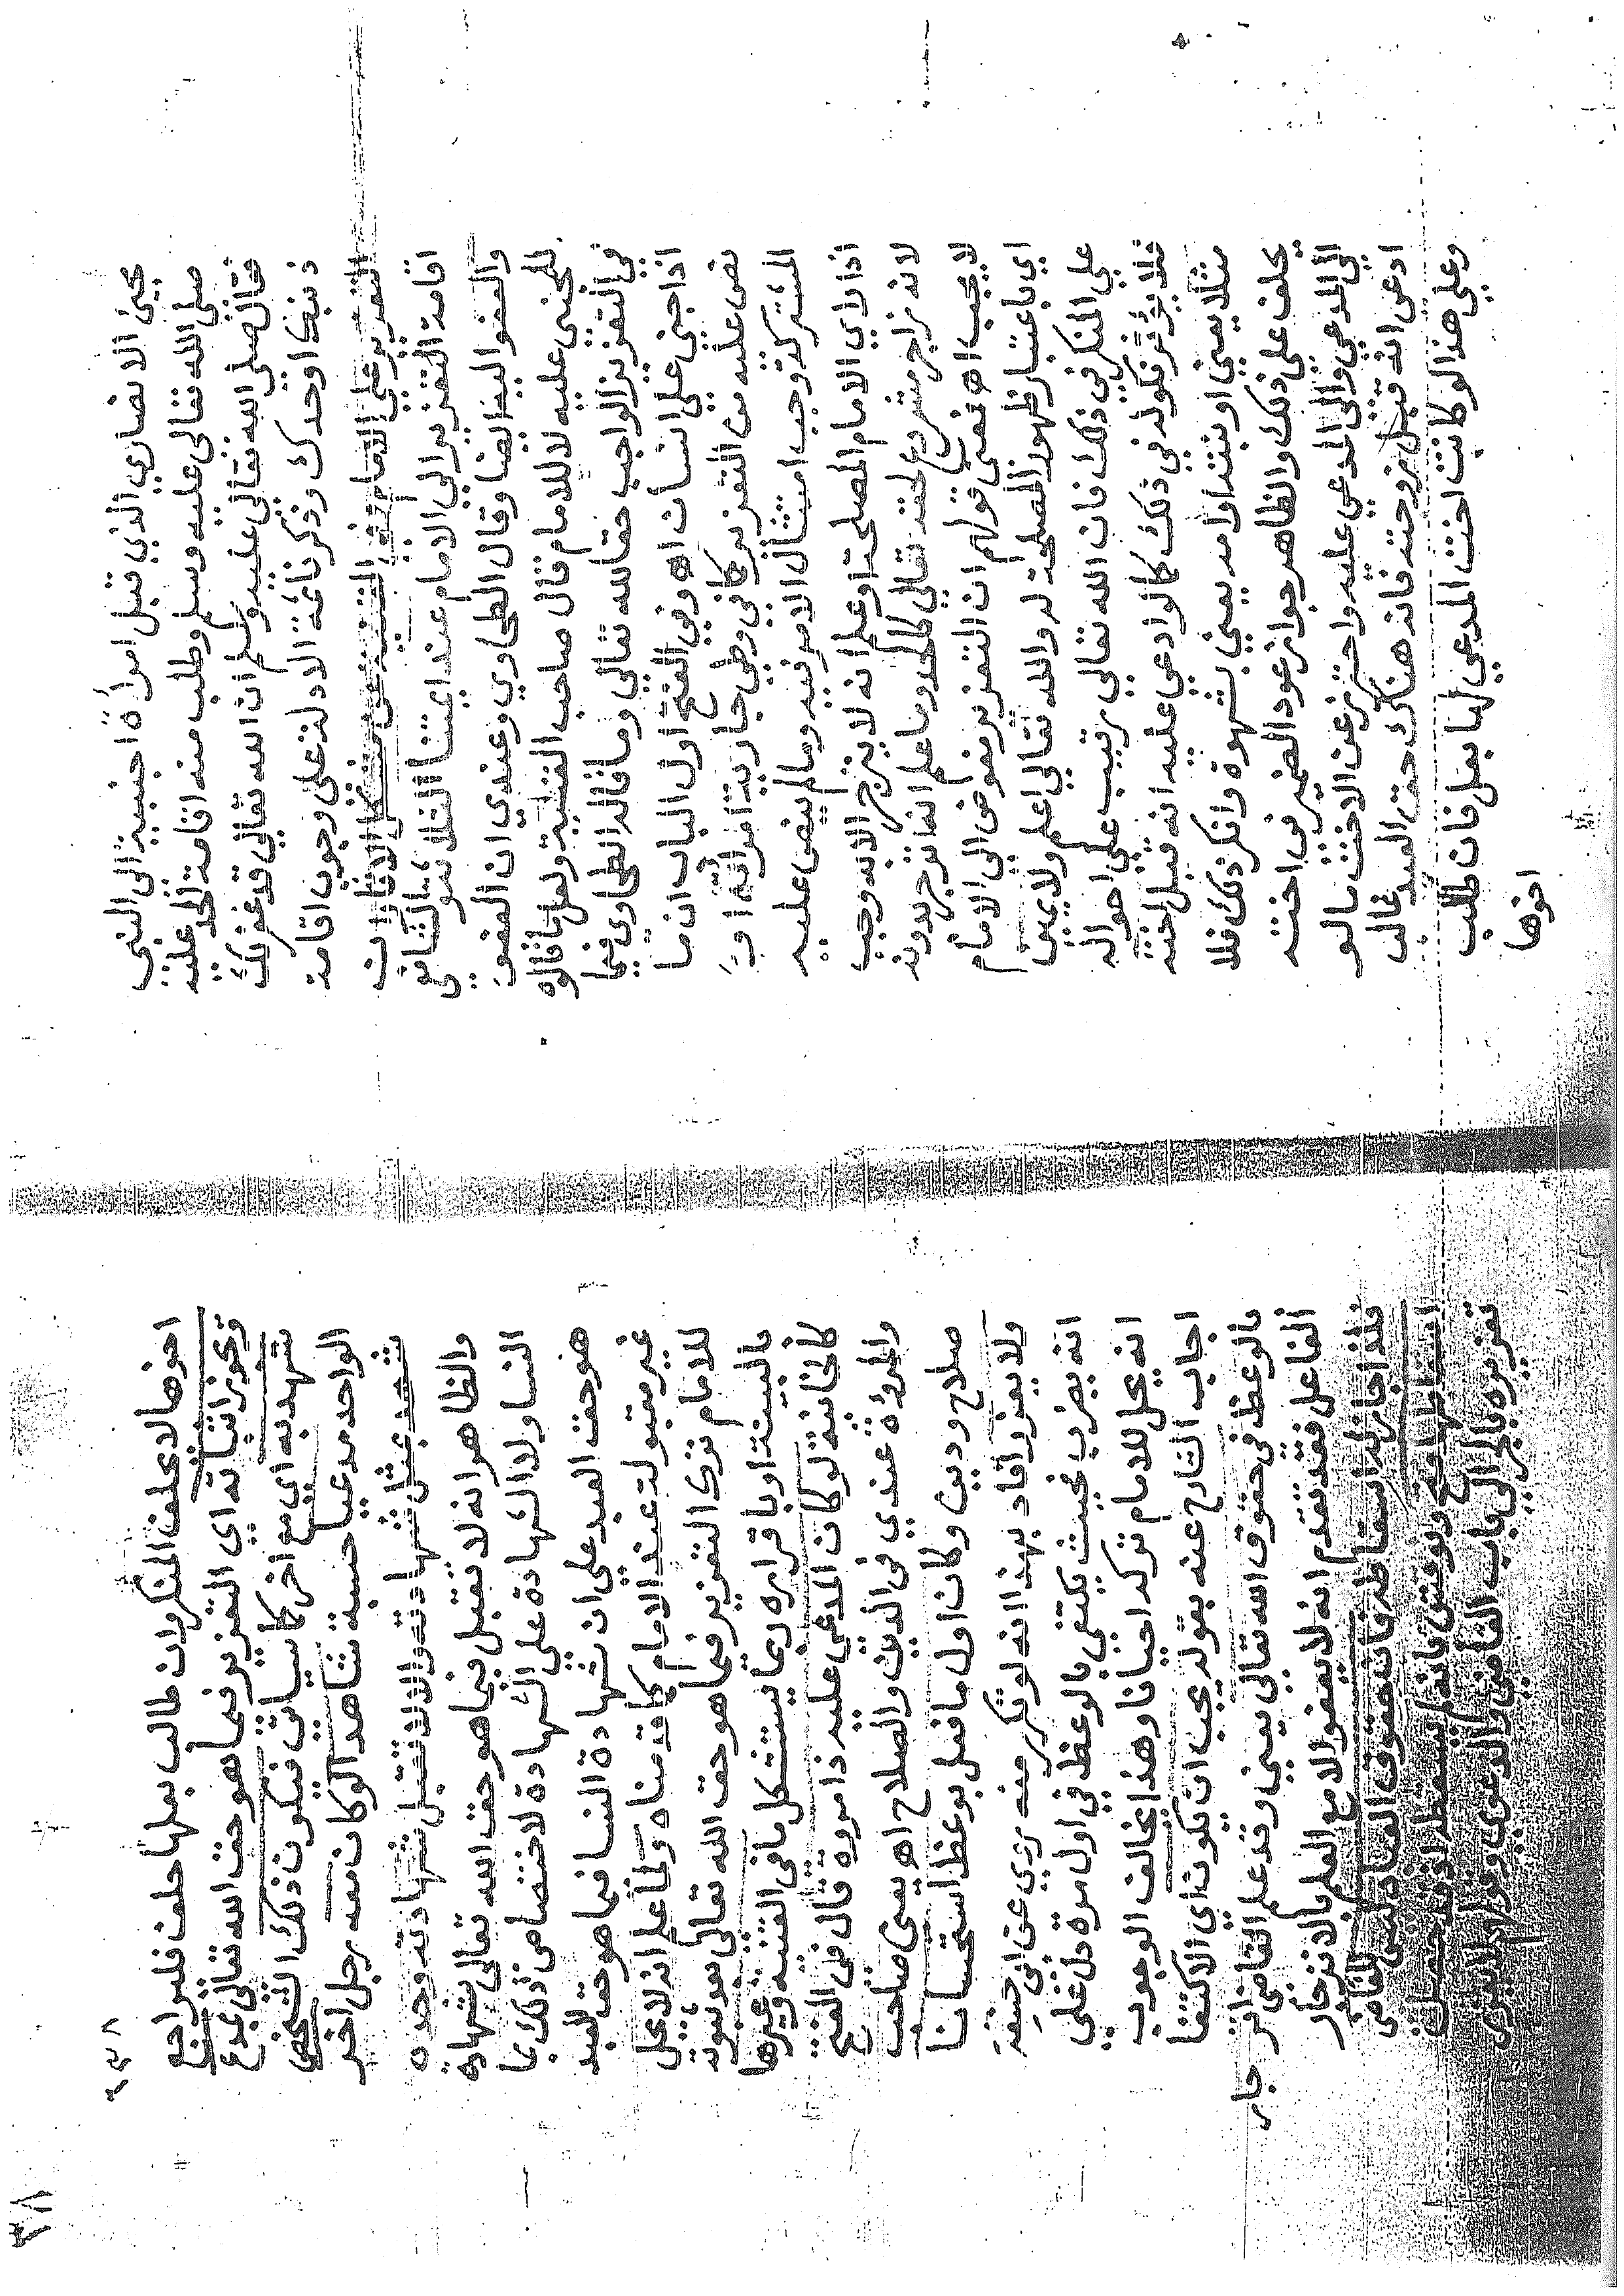 يجيئ الانصاري الذي قبل امراة اجنبية الى النبي
صلى الله تعالى عليه وسلم وطلب منه اقامة الحد عليه
فقال صلى الله تعالى عليه وسلم ان الله تعالى قد غفر لك
ذنبك او حدك وذكرنا ثمة الادلة على وجوب اقامة
التعزير على الامام في القنية عن مشكل الاثار ان
اقامة التعزير الى الامام عند ايمتنا الثلاثة والشافعي
والعفو اليه ايضا وقال الطحاوي وعندي ان العفو
للمجني عليه لا للامام قال صاحب القنية ولعل ما قالوه
في التعزير الواجب حقا لله تعالى وما قاله الطحاوي فيما
اذا جنى على انسان اه وفي الفتح اول الباب ان ما
نص عليه من التعزير كما في وطي جارية امراته او
المشتركة وجب امتثال الامر فيه وما لم ينص عليه
اذا راي الامام المصلحة او علم انه لا ينزجر الا به وجب
لانه زاجر مشروع لحقه تعالى كالحد وما علم انه انزجر بدونه
لا يجب اه فمعنى قولهم ان التعزير مفوض الى الامام
اي باعتبار ظهور المصلحة له والله تعالى اعلم ولا يمين
على المنكر في ذلك فان الله تعالى رقيب على احواله
فلا يؤثر نكوله في ذلك كما لو ادعي عليه انه قبل اخته
مثلا يعني او بنته او امه يعني بشهوة وانكر ذلك فلا
يحلف على ذلك والظاهر جواز عود الضمير في اخته
الى المدعي والى المدعي عليه واحترز عن الاخت ما لو
ادعى انه قبل زوجته فانه هناك حق العبد غالب
وعلى هذا لو كانت اخت المدعي لها بعل فان طلب
اخوها
٢٣٨
اخوها لا يحلف المنكر وان طالب بعلها حلف فليراجع
ويجوز اثباته اي التعزير فيما هو حق الله تعالى بمدع
شهد به اي مع اخر كما سياتي فيكون ذلك الشخص
الواحد مدعيا حسبة شاهدا لو كان معه رجل اخر
شهد بمثل شهادته والا لا تقبل شهادته وحده
والظاهر انه لا يقبل فيما هو حق الله تعالى شهادة
النسا ولا الشهادة على الشهادة لاختصاص ذلك بما
هو حق العبد على ان شهادة النسا فيما هو حق العبد
غير مقبولة عند الامام كما قدمناه ولما علم انه لا يحل
للامام ترك التعزير فيما هو حق الله تعالى بعد ثبوته
بالبينة او باقراره ربما يستشكل ما في القنية وغيرها
كالخانية لو كان المدعي عليه ذا مروة قال في الفتح
والمروة عندي في الدين والصلاح اه يعني صاحب
صلاح ودين وكان اول ما فعل يوعظ استحسانا
ولا يعزر افاد بهذا انه لو تكرر منه روي عن ابي حنيفة
انه يضرب بحيث يكتفى بالوعظ في اول مرة دل على
انه يحل للامام تركه احيانا وهذا يخالف الوجوب
اجاب الشارح عنه بقوله يجب ان يكون اي الاكتفا
بالوعظ في حقوق الله تعالى يعني وقد علم القاضي انزجار
الفاعل فقد تقدم انه لا يعفو الا مع العلم بالانزجار
فلذا جاز له اسقاطه فان حقوق العباد ليس للقاضي
اسقاطها فتح ونوقش بانه لم يسقط اذ قد حصل
تعزيره بالجر الى باب القاضي والدعوى وقولهم لا يعزر